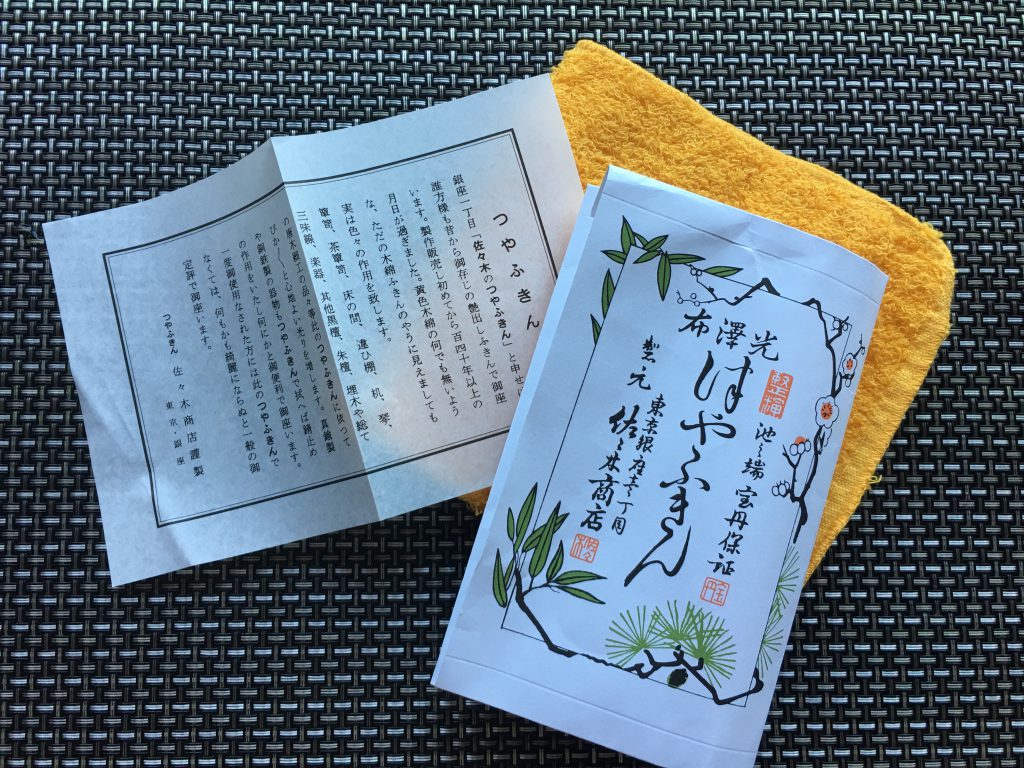 つやふきん
銀座一丁目「佐々木のつやふきん」と申せば
誰方様も昔から御存じの艶出しふきんで御座
います。製作販売し初めてから百四十年以上の
月日が過ぎました。黄色木綿の何でも無いよう
な、ただの木綿ふきんのやうに見えましても
実は色々の作用を致します。
簞笥、茶簞笥、床の間、違ひ棚、机、琴、
三味線、楽器、其他黒檀、朱檀、埋木や総て
の唐木細工の品々等此のつやふきんに依って
ぴか〳〵と心地よい光りを増します。真鍮製
や銅鉄製の器物もつやふきんで拭へば錆止め
の作用をいたし何にかと御便利で御座います。
一度御使用なされた方には此のつやふきんで
なくては、何もかも綺麗にならぬと一般の御
定評で御座います。
つやふきん 佐々木商店謹製
東京・銀座
光澤布
池之端 宝丹保証
津やふきん
東京銀座壱丁目
製元 佐々木商店